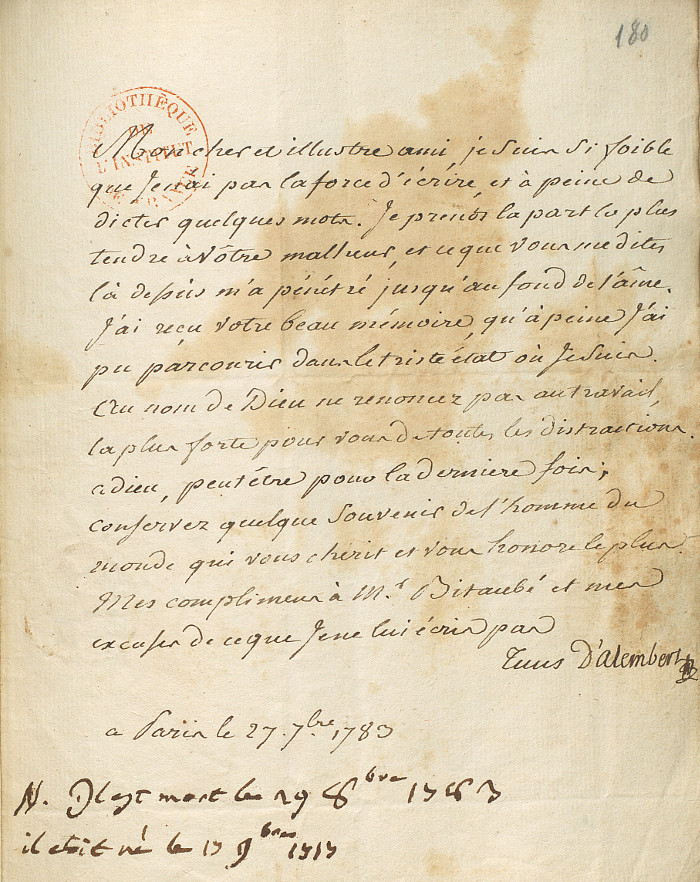 180
BIBLIOTHÈQUE
DE
L'INSTITUT
DE FRANCE
Mon cher et illustre ami, je suis si foible
que Je n'ai pas la force d'écrire, et à peine de
dicter quelques mots. Je prends la part la plus
tendre à vôtre malheur, et ce que vous me dites
là dessus m'a pénétré jusqu'au fond de l'âme.
J'ai reçu votre beau mémoire, qu'à peine J'ai
pu parcourir dans le triste état où Je suis.
Au nom de Dieu ne renoncez pas au travail,
la plus forte pour vous de toutes les distractions.
adieu, peut être pour la derniere fois;
conservez quelque souvenir de l'homme du
monde qui vous chérit et vous honore le plus.
Mes complimens à M.r Bitaubé et mes
excuses de ce que Je ne lui écris pas
Tuus D'Alembert
a Paris le 27. 7.bre 1783
N. Il est mort le 29 8bre 1783
il etoit né le 17 9bre 1717